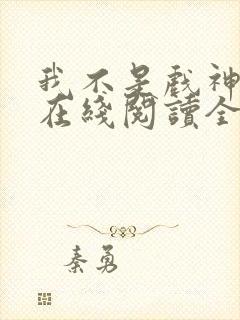 我不是戏神
在綫閱讀全
秦勇